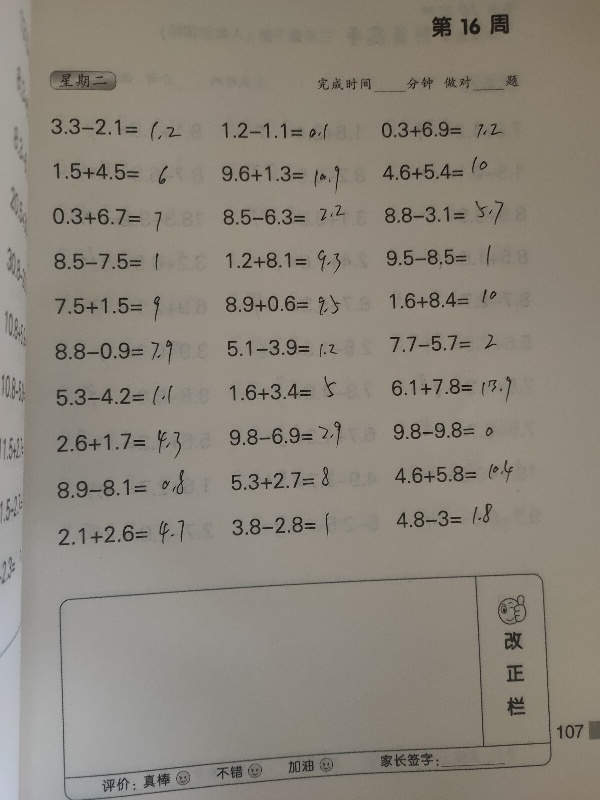 第 16 周
星期二 完成时间____分钟 做对____题
3.3−2.1= 1.2 1.2−1.1= 0.1 0.3+6.9= 7.2
1.5+4.5= 6 9.6+1.3= 10.9 4.6+5.4= 10
0.3+6.7= 7 8.5−6.3= 2.2 8.8−3.1= 5.7
8.5−7.5= 1 1.2+8.1= 9.3 9.5−8.5= 1
7.5+1.5= 9 8.9+0.6= 9.5 1.6+8.4= 10
8.8−0.9= 7.9 5.1−3.9= 1.2 7.7−5.7= 2
5.3−4.2= 1.1 1.6+3.4= 5 6.1+7.8= 13.9
2.6+1.7= 4.3 9.8−6.9= 2.9 9.8−9.8= 0
8.9−8.1= 0.8 5.3+2.7= 8 4.6+5.8= 10.4
2.1+2.6= 4.7 3.8−2.8= 1 4.8−3= 1.8
改正栏
107
评价：真棒 不错 加油 家长签字：________